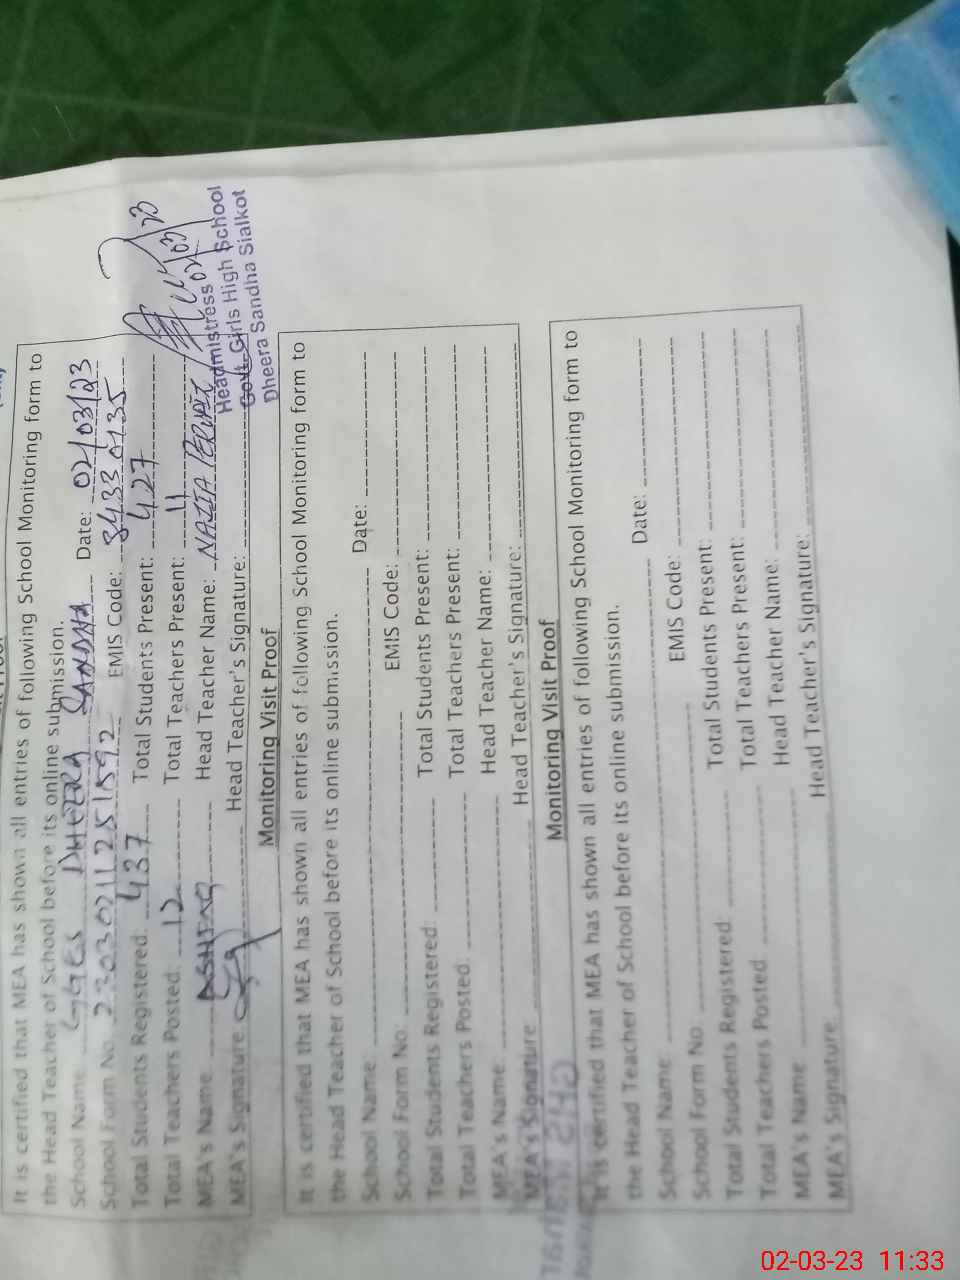 It is certified that MEA has shown all entries of following School Monitoring form to
the Head Teacher of School before its online submission.
School Name GGES DHEERA SANDHA Date: 02/03/23
School Form No. EMIS Code: 34330135
Total Students Registered: 437 Total Students Present: 427
Total Teachers Posted: 12 Total Teachers Present: 11
MEA's Name ASHFAQ Head Teacher Name: NAZIA PERVEZ
MEA's Signature Head Teacher's Signature:
02/03/23
Headmistress
Govt. Girls High School
Dheera Sandha Sialkot
Monitoring Visit Proof
It is certified that MEA has shown all entries of following School Monitoring form to
the Head Teacher of School before its online submission.
School Name: Date:
School Form No: EMIS Code:
Total Students Registered: Total Students Present:
Total Teachers Posted: Total Teachers Present:
MEA's Name: Head Teacher Name:
MEA's Signature Head Teacher's Signature:
Monitoring Visit Proof
It is certified that MEA has shown all entries of following School Monitoring form to
the Head Teacher of School before its online submission.
School Name: Date:
School Form No. EMIS Code:
Total Students Registered Total Students Present:
Total Teachers Posted Total Teachers Present:
MEA's Name Head Teacher Name:
MEA's Signature Head Teacher's Signature:
02-03-23 11:33